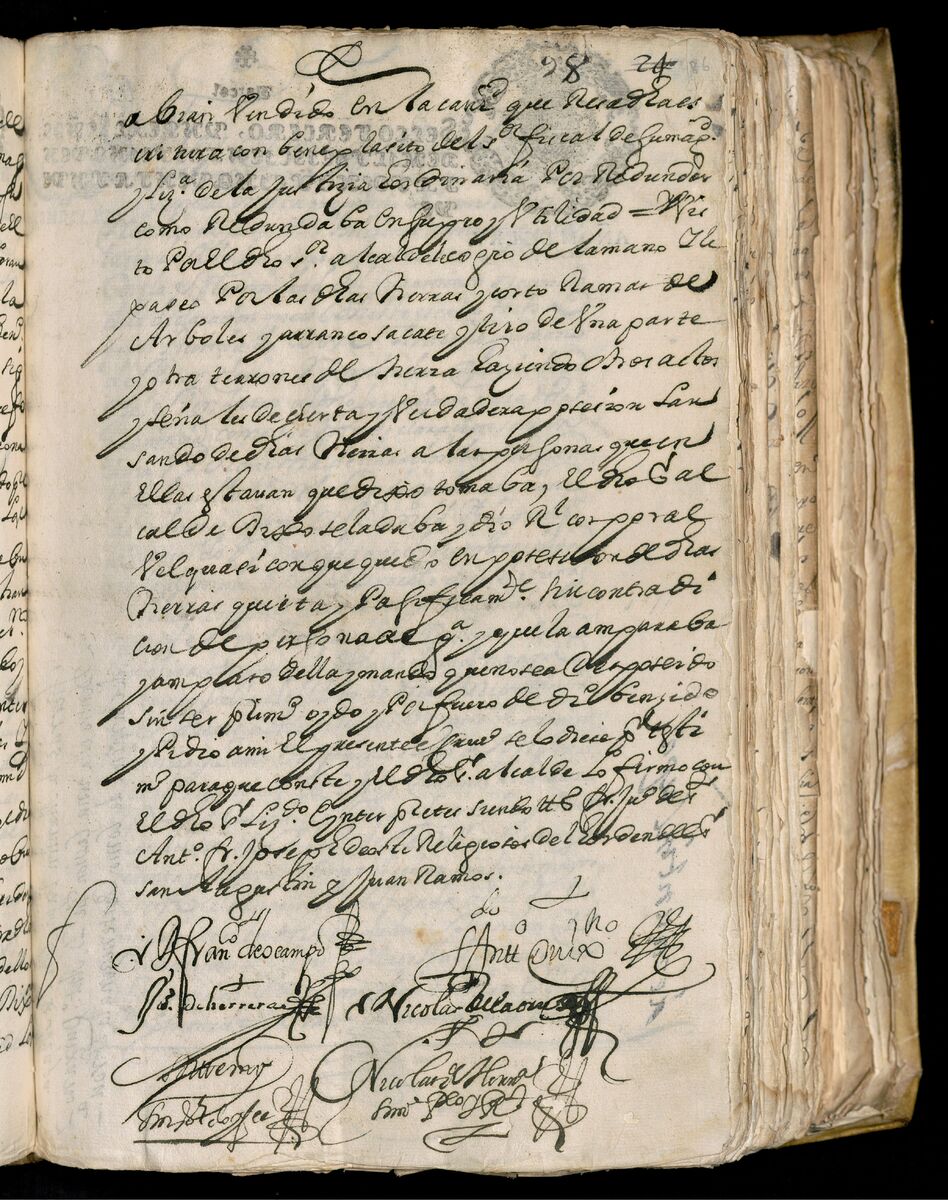 98 24
abian Vendido en la cantd que Resa dha es
critura con beneplasito del sr fiscal de su magd
y liza de la justizia hordinaria Por Redundar
como Redundaba en su pro y Vtilidad = Vis
to Pa el dho sr alcalde le cogio de la mano y le
paseo Por las dhas tierras y corto Ramas de
Arboles y arranco sacate y tiro de Vna parte
a otra terrones de tierra haziendo otros actos
y señales de cierta y Verdadera posesion lan
sando de dhas tierras a las personas que en
Ellas estavan que dixo tomaba, y El dho sr al
calde Dixo se la daba y dio Rl corporal
Vel quasi con que quedo en posesion de dhas
tierras quieta y Pasificamte sin contradi
cion de persona alga y que la amparaba
y amparo della y mando que no sea desposeido
sin ser primo oydo y Por fuero de dro bensido
y Pidio a mi El presente essno se lo diese pr testi
mo para que conste y El dho sr alcalde lo firmo con
El dho sr lizdo Ynterpretes siendo tts fr. Juo de Sn
Anto fr. Joseph de Religiosos del horden del Sr
san Agustin y Juan Ramos.
Frano de ocampo
do Antto
Jo. de herrera
Nicolas de
Ante my
Nicolas de